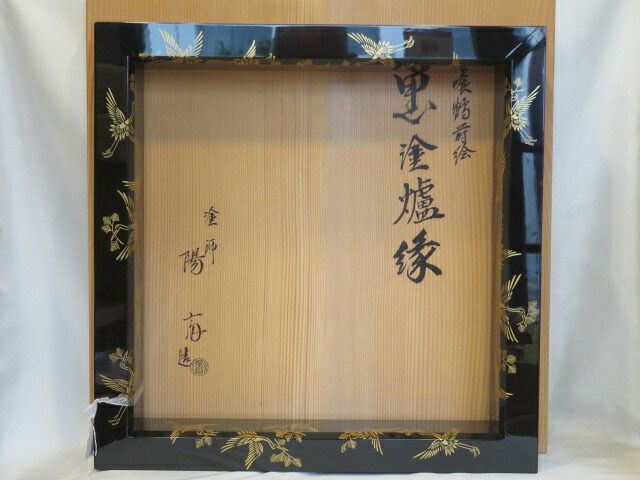 喰鶴蒔絵
黒塗爐縁
塗師
陽斎造